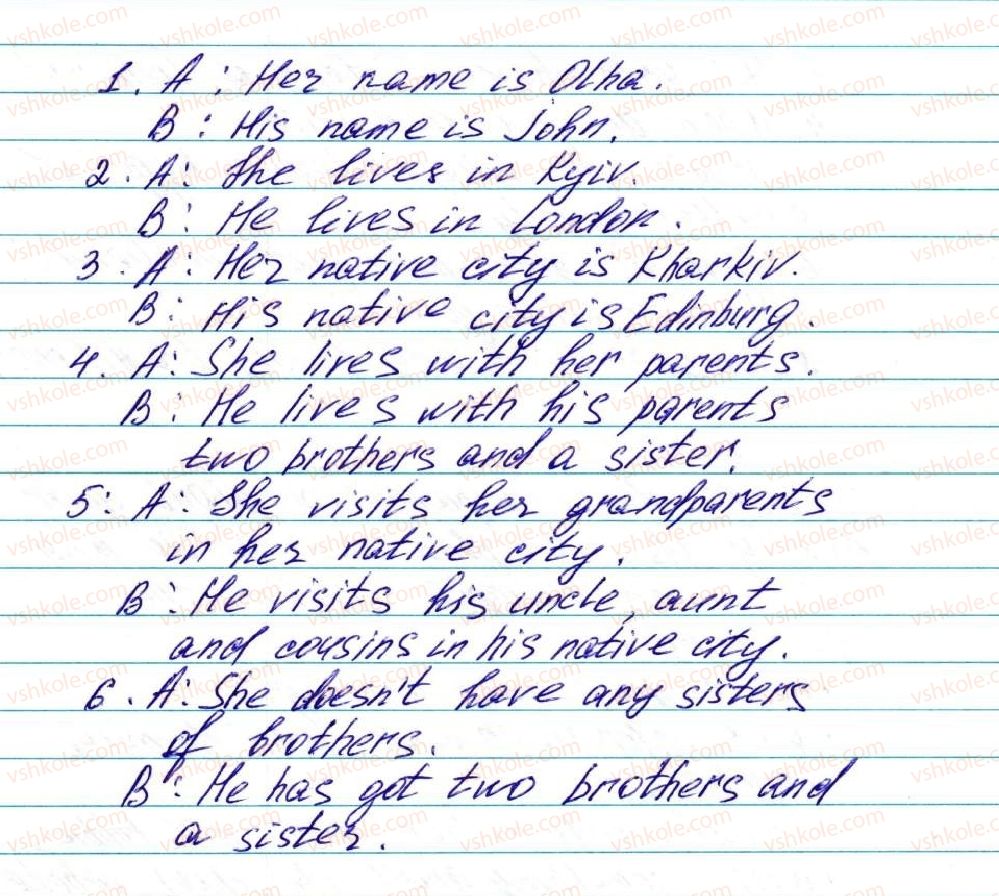 1. A: Her name is Olha.
B: His name is John.
2. A: She lives in Kyiv.
B: He lives in London.
3. A: Her native city is Kharkiv.
B: His native city is Edinburg.
4. A: She lives with her parents.
B: He lives with his parents
two brothers and a sister.
5: A: She visits her grandparents
in her native city.
B: He visits his uncle, aunt
and cousins in his native city.
6. A: She doesn't have any sisters
of brothers.
B: He has got two brothers and
a sister.